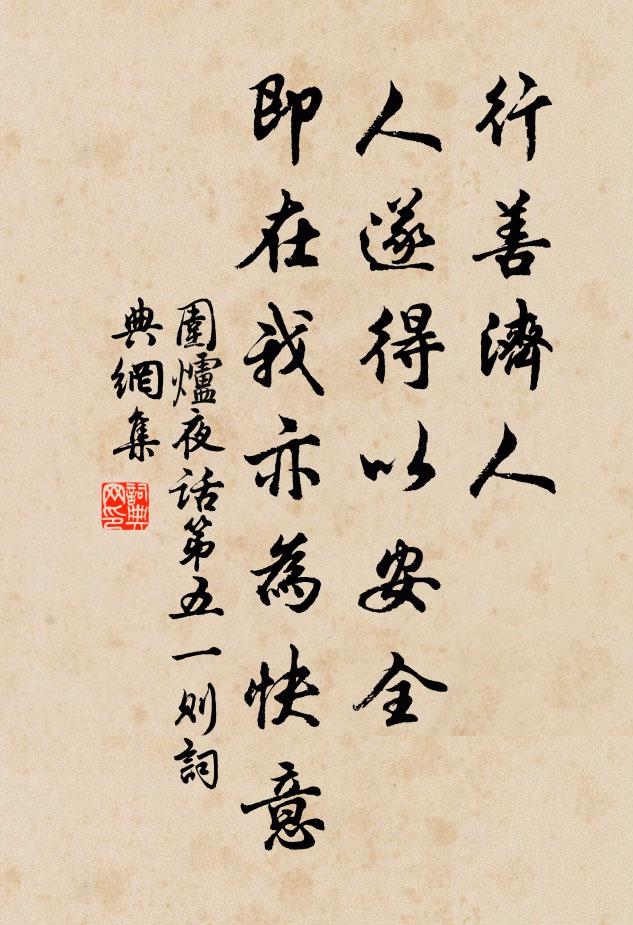 行善濟人
人遂得以安全
即在我亦為快意
圍爐夜话第五一则詞
典網集
詞典
网印